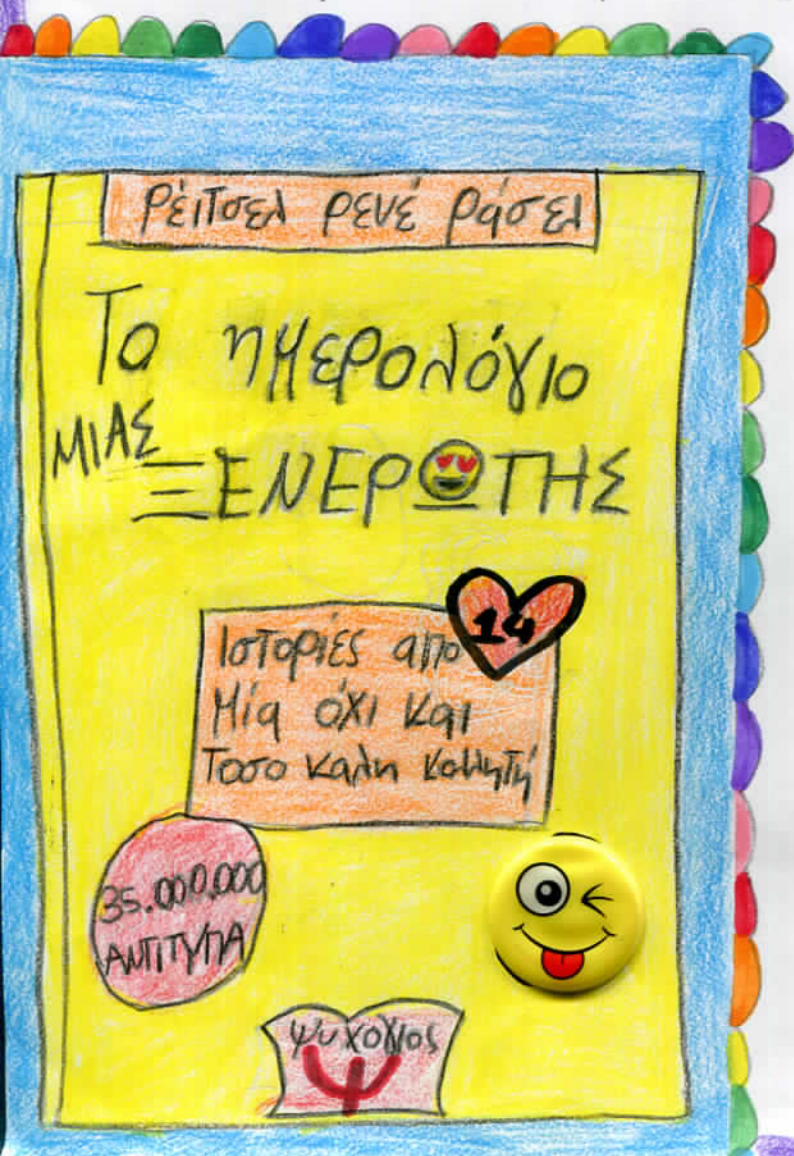 Ρέιτσελ ρενέ ράσελ
Το ημερολόγιο
ΜΙΑΣ
ΞΕΝΕΡΩΤΗΣ
14
Ιστοριές απο
Μία όχι και
Τοσο καλη κολλητή
35.000.000
ΑΝΤΙΤΥΠΑ
ψυχογιος
Ψ